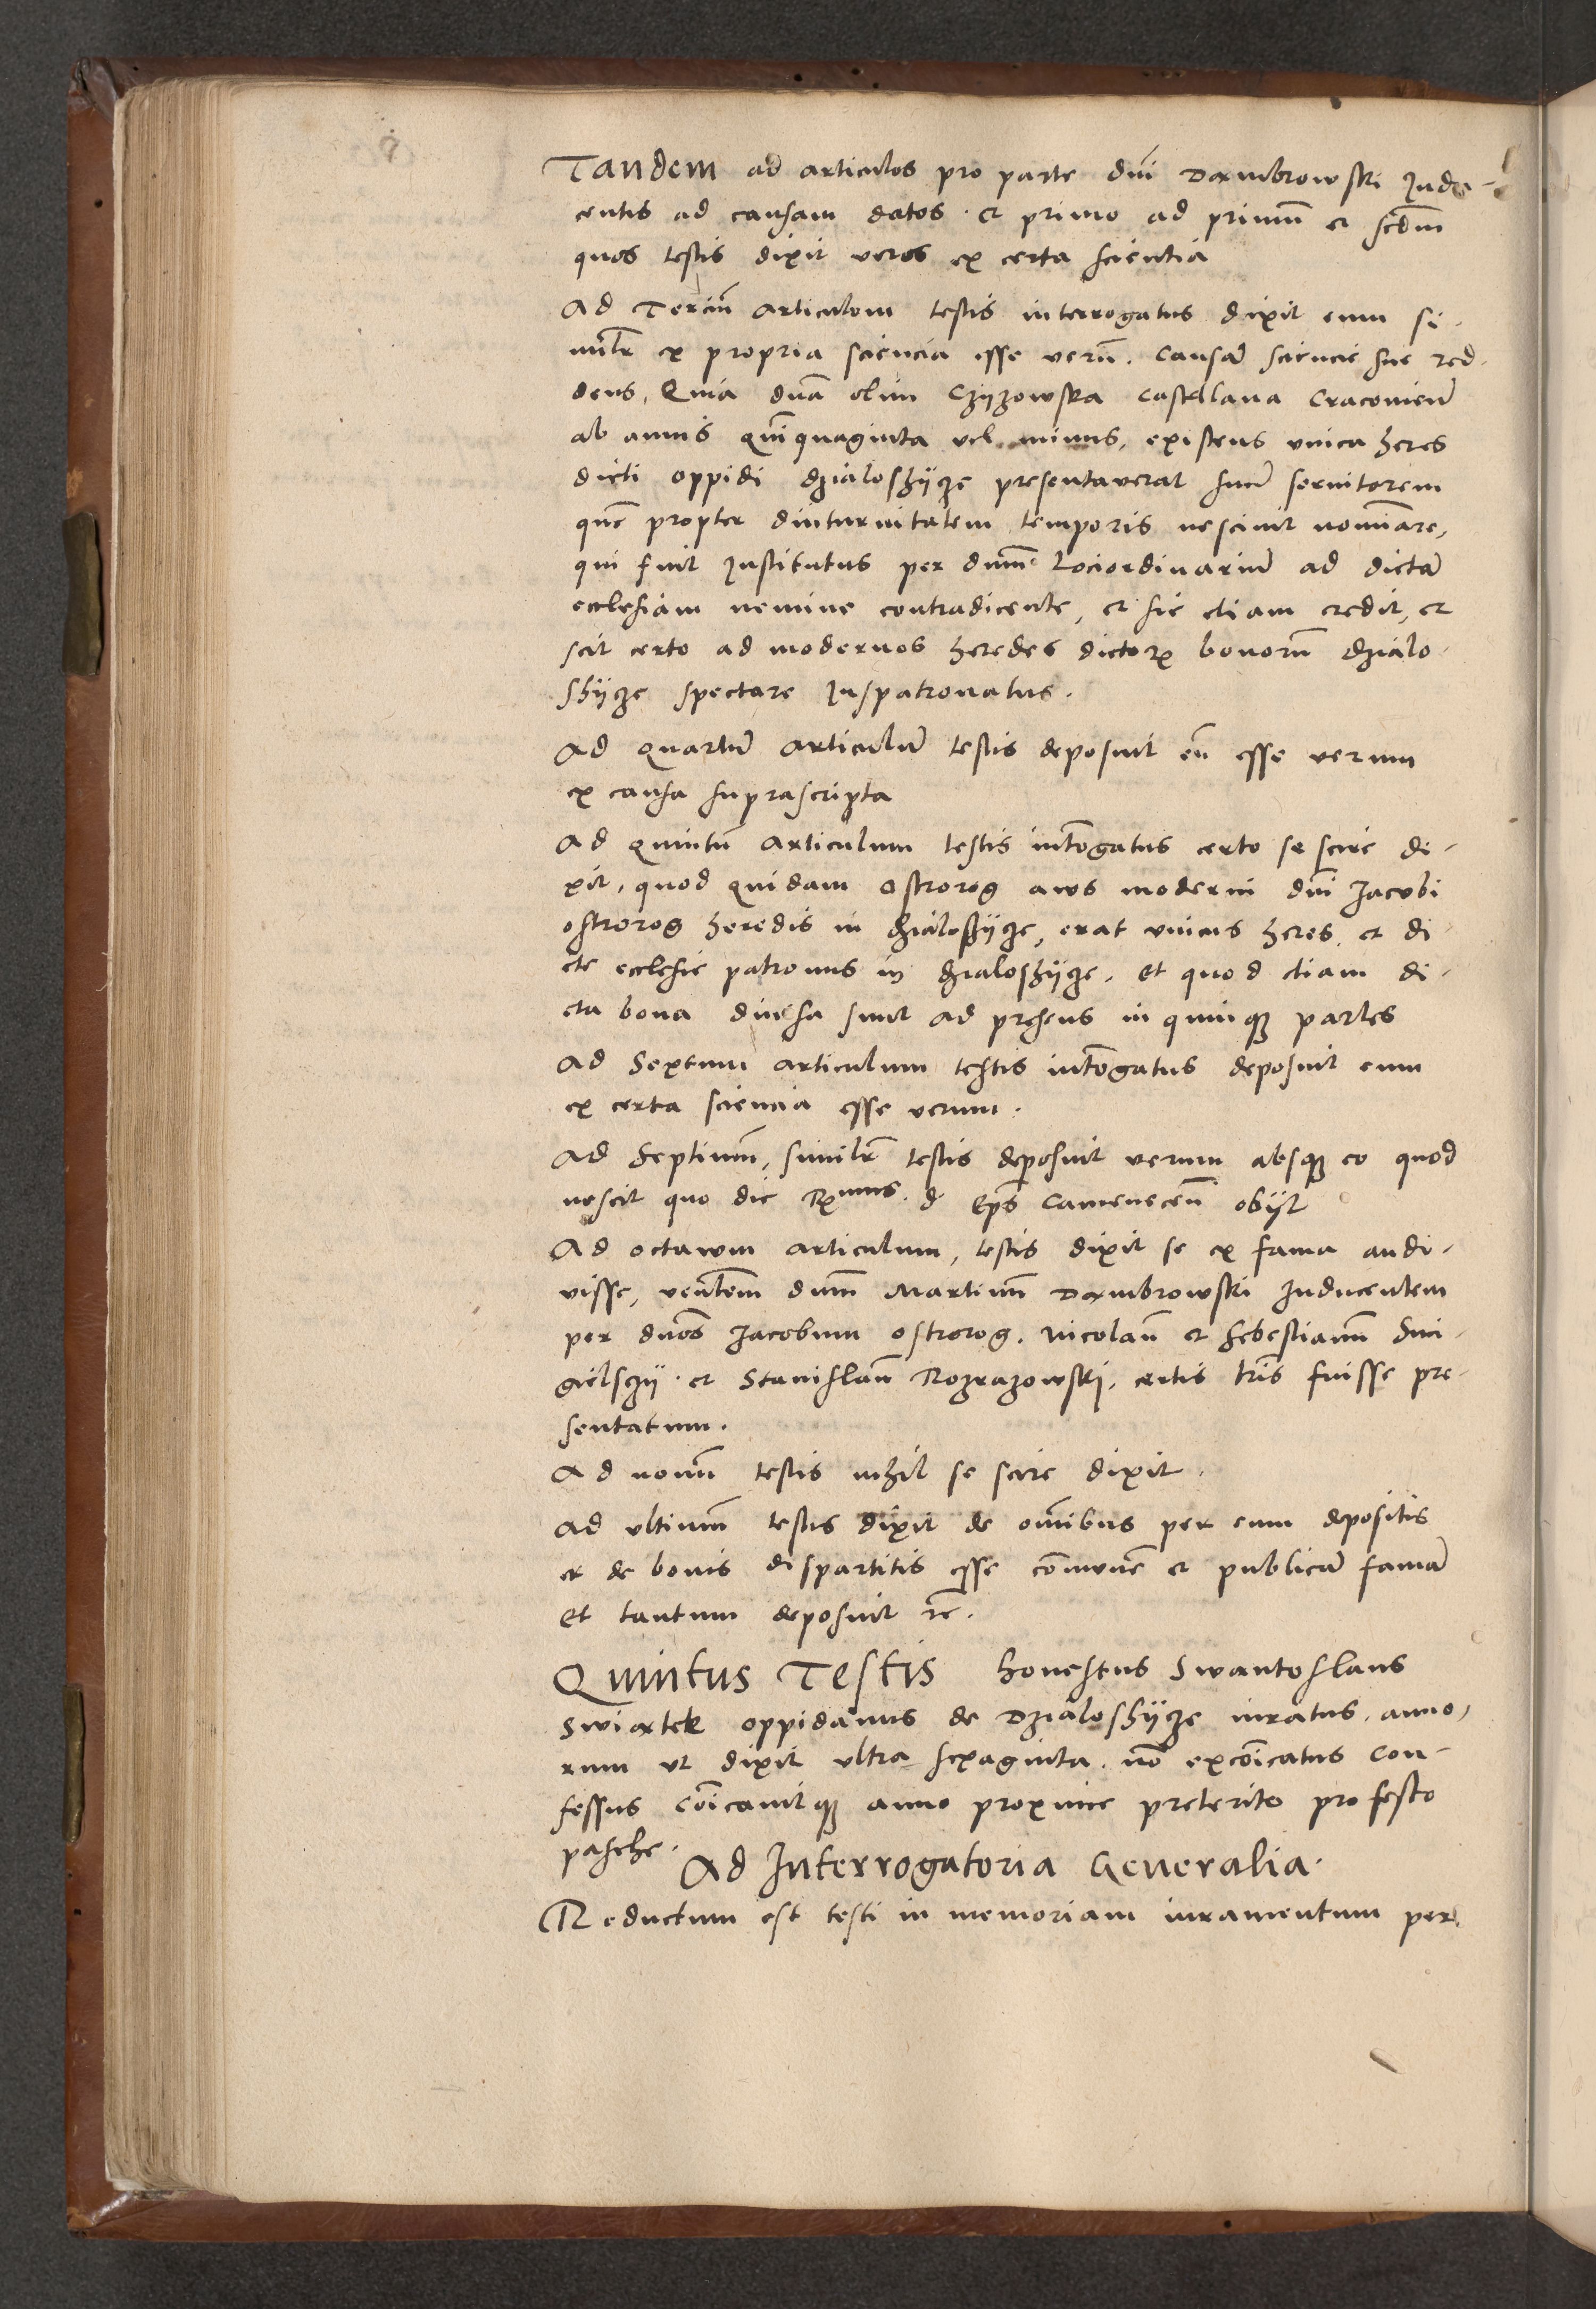 Tandem ad articulos pro parte dni Dambrowski Indu-
centis ad causam datos. et primo ad primu et scdm
quos testis dixit veros ex certa scientia
Ad Terciu articulom testis interrogatus dixit eum si-
milr ex propria sciencia esse veru. Causa sciencie sue red-
dens, Quia dna olim Czyzowska Castellana Cracouien
ab annis quinquaginta vel minus, existens vnica heres
dicti oppidi dzialoshycze presentaverat suu seruitorem
que propter diuturnitatem temporis nesciuit nominare,
qui fuit Institutus per dnum Lociordinariu ad dicta
ecclesiam nemine contradicente, et sic etiam credit, et
scit certo ad modernos heredes dictor bonoru dzialo-
shycze spectare Iuspatronatus.
Ad Quartu articulu testis deposuit eu esse verum
ex causa suprascripta
Ad quintu articulum testis introgatus certo se scire di-
xit, quod quidam Ostrorog avus moderni dni Jacobi
ostrorog heredis in dzialoshycze, erat vnicus heres, et di-
cte ecclesie patronus in dzialoshycze. Et quod etiam di-
cta bona diuisa sunt ad presens in quinq partes
Ad Sextum articulum testis introgatus deposuit eum
ex certa sciencia esse verum.
Ad septimu, similr testis deposuit verum absq eo quod
nescit quo die Rmus. d Eps Camenecen obyt
Ad octavum articulum, testis dixit se ex fama audi-
visse, venlem dnum Martinu Dambrowski Inducentem
per dnos Jacobum ostrorog. Nicolau et sebestianu Smi-
gielsczy. et Stanislau Rozrazowski, certis lris fuisse pre-
sentatum.
Ad nonu testis nihil se scire dixit.
Ad vltimu testis dixit de omibus per eum depositis
et de bonis dispartitis esse comune et publica fama
Et tantum deposuit rc.
Quintus Testis honestus Swantoslaus
Swiatek oppidanus de Dzialoshycze iuratus, anno-
rum vt dixit vltra sexaginta. no excoicatus con-
fessus coicauitq anno proxime preterito pro festo
pasche.
Ad Interrogatoria Generalia.
Reductum est testi in memoriam iuramentum per